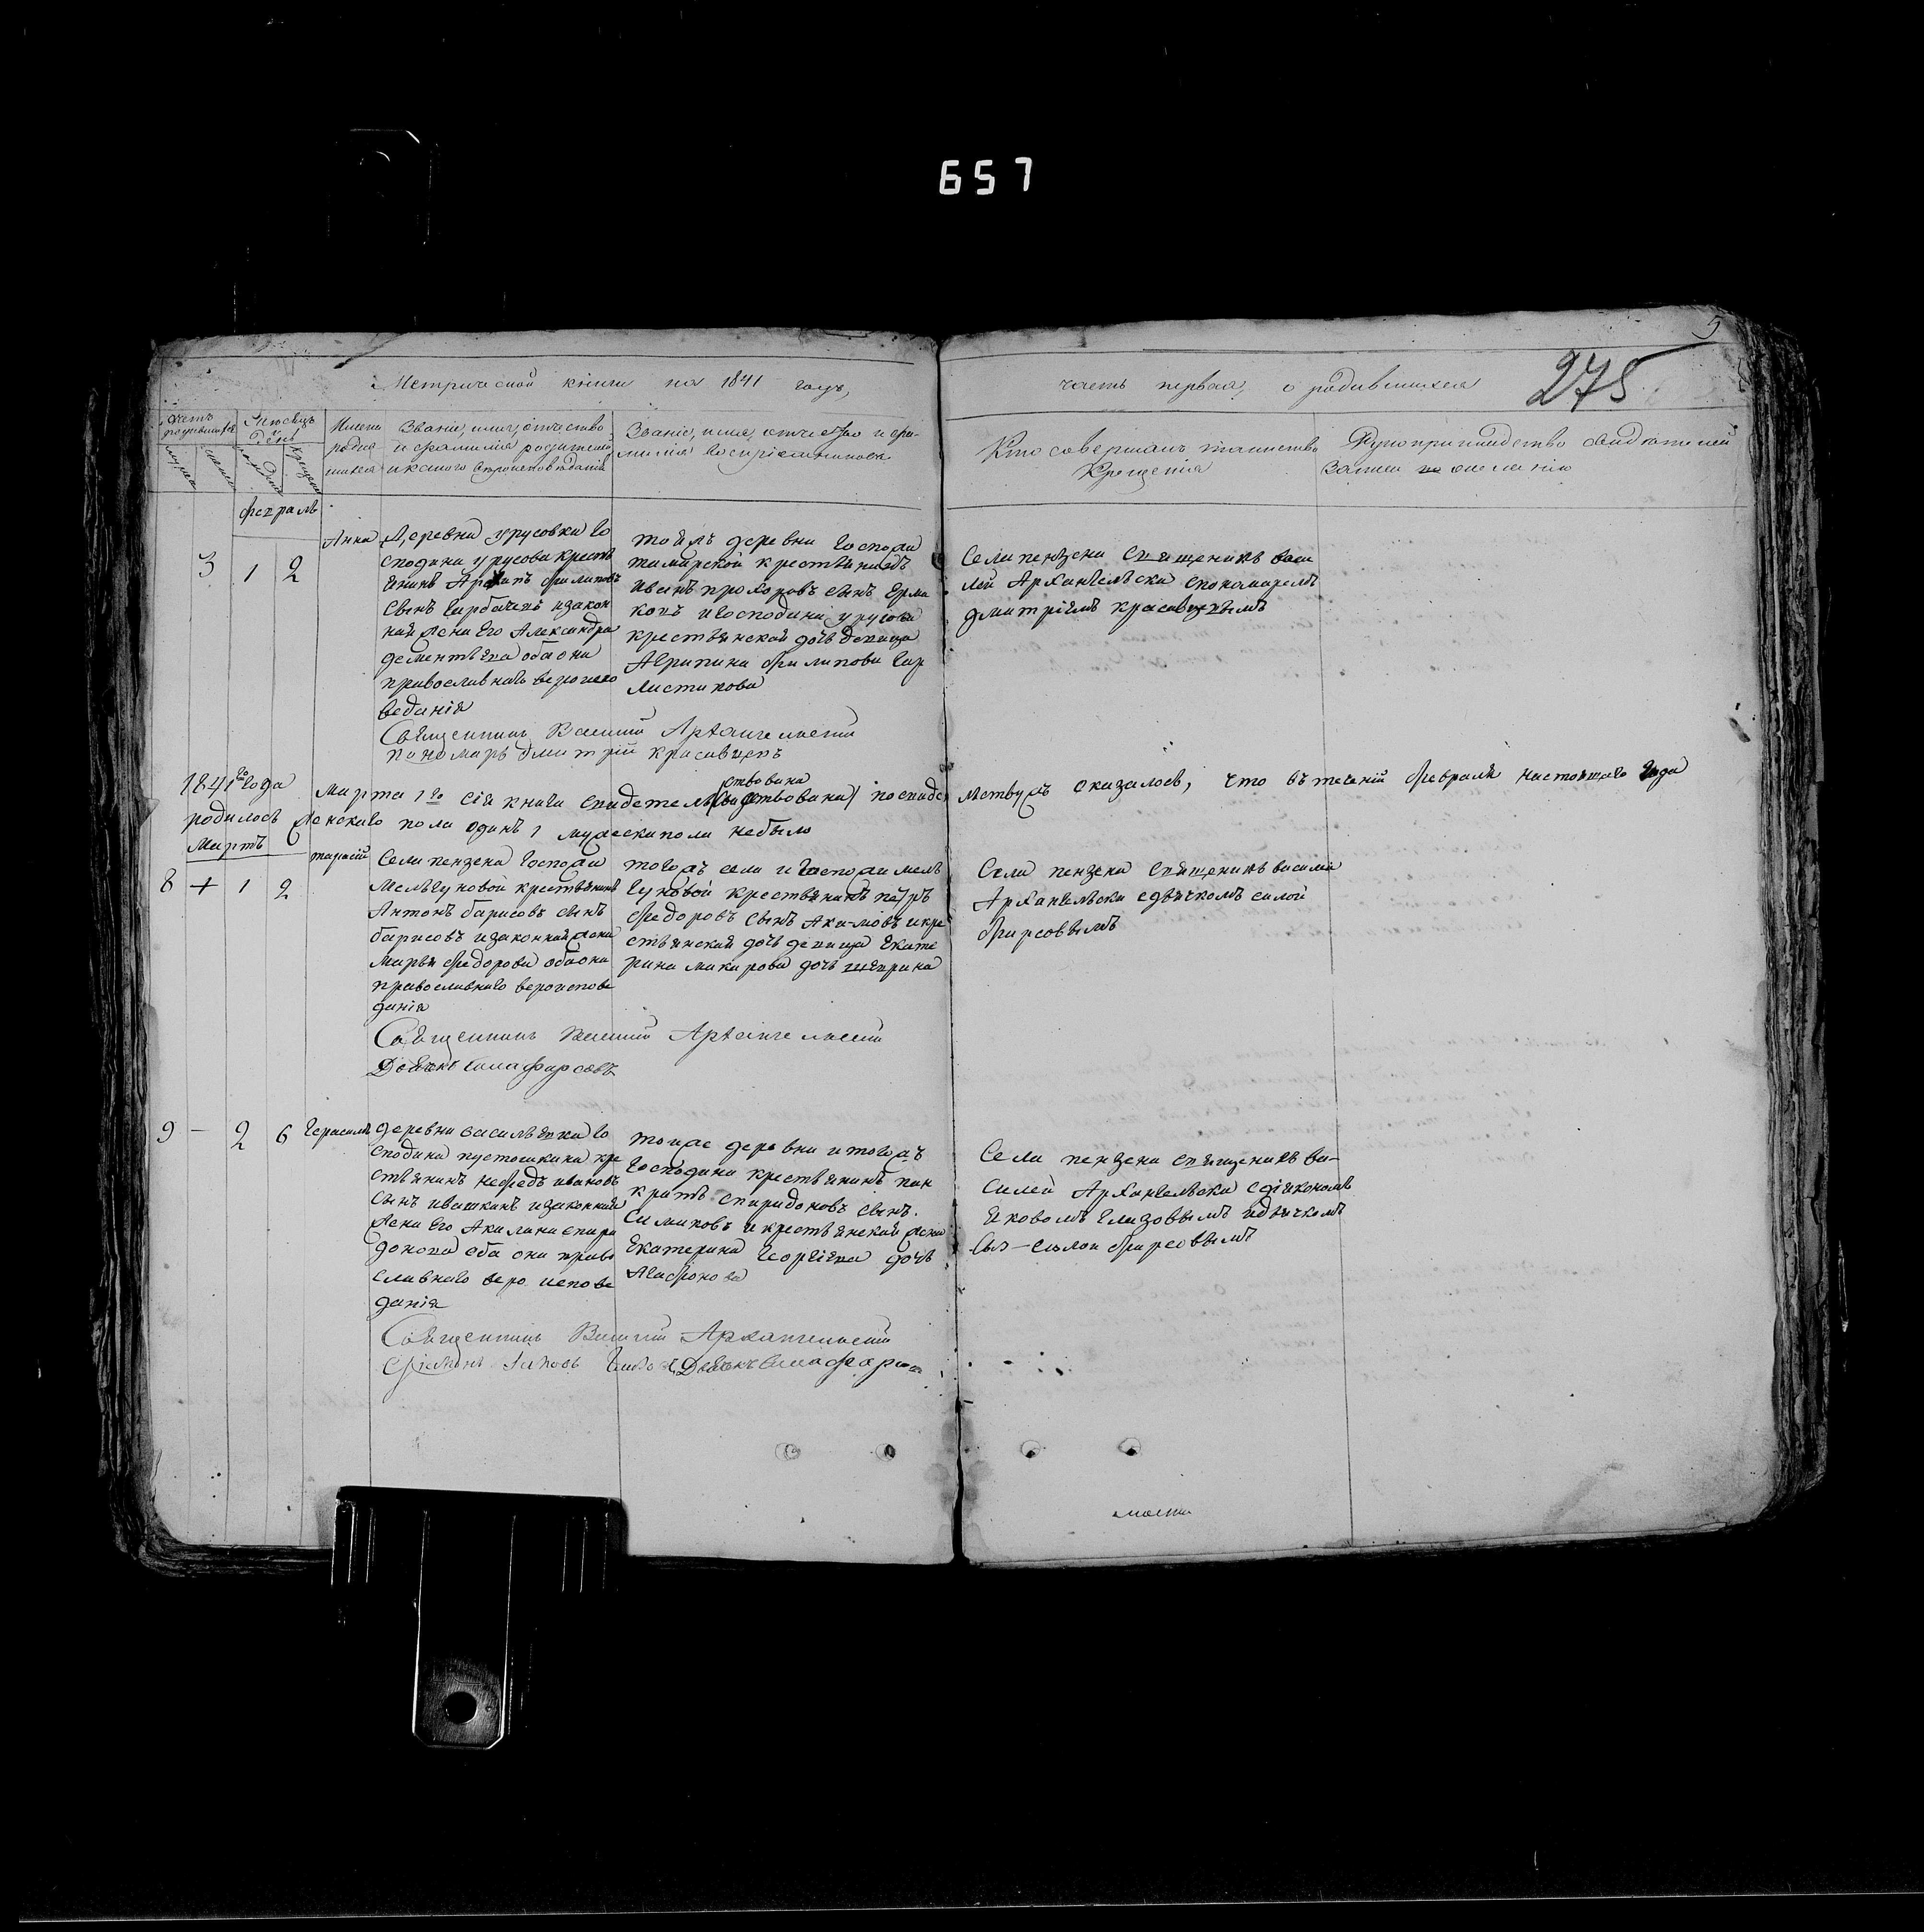 657
5
275
Метрической книги на 1841 годъ,
часть первая, о родившихся
Счетъ родившихся
Мѣсяцъ и день
Имена родившихся
Званіе, имя, отчество и фамилія родителей и какого вѣроисповѣданія
Званіе, имя, отчество и фамилія воспріемниковъ
Кто совершалъ таинство
Крещенія
февраль
3 1 2
Анна
Деревни урусовки го
сподина урусова крестья
янинъ Архипъ филиповъ
сынъ Горбачевъ и закон
ная жена его Александра
дементьева оба они
православнаго вероиспо
веданія
тойжъ деревни госпожи
крестьянинъ
иванъ прохоровъ сынъ Ерма
ковъ и господина урусова
крестьянская дочь девица
Агрипина филипова
Села пензена священникъ васи
лей Архангельски с пономаремъ
дмитріемъ красавцевымъ
Священникъ Василий Архангельский
пономарь дмитрій красавцевъ
1841го года Марта 1го сія книга свидетельствована по свиде
льствужъ оказалось, что въ теченій февраля настоящаго года
родилось женскаго пола одинъ 1 мужеска пола небыло
Мартъ
8 + 1 2
тарасій
Села пензена госпожи
Мельгуновой крестьянинъ
Антонъ барисовъ сынъ
барисовъ и законная жена
Марья федорова оба они
православнаго вероиспове
данія
тогожъ села и госпожи мель
гуновой крестьянинъ петръ
федоровъ сынъ Акимовъ и кре
стьянская дочь девица Екате
рина макарова дочь
Села пензена священникъ василей
Архангельски с дьячкомъ силой
фирсовымъ
Священникъ Василий Архангельский
Дьячкъ Сила фирсовъ
9 – 2 6
Герасимъ
деревни васильевки го
сподина пустошкина кре
стьянинъ нефедъ ивановъ
сынъ ивашкинъ и законная
жена его Акилина спири
донова оба они право
славнаго веро испове
данія
тоиже деревни и тогожъ
господина крестьянинъ пан
кратъ спиридоновъ сынъ
Симаковъ и крестьянская жена
Екатерина георгіева дочь
Агафонова
Села пензена священникъ ва-
силей Архангельски с діякономъ
яковомъ Глизовымъ и дьячкомъ
силои фирсовымъ
Священникъ Василий Архангельский